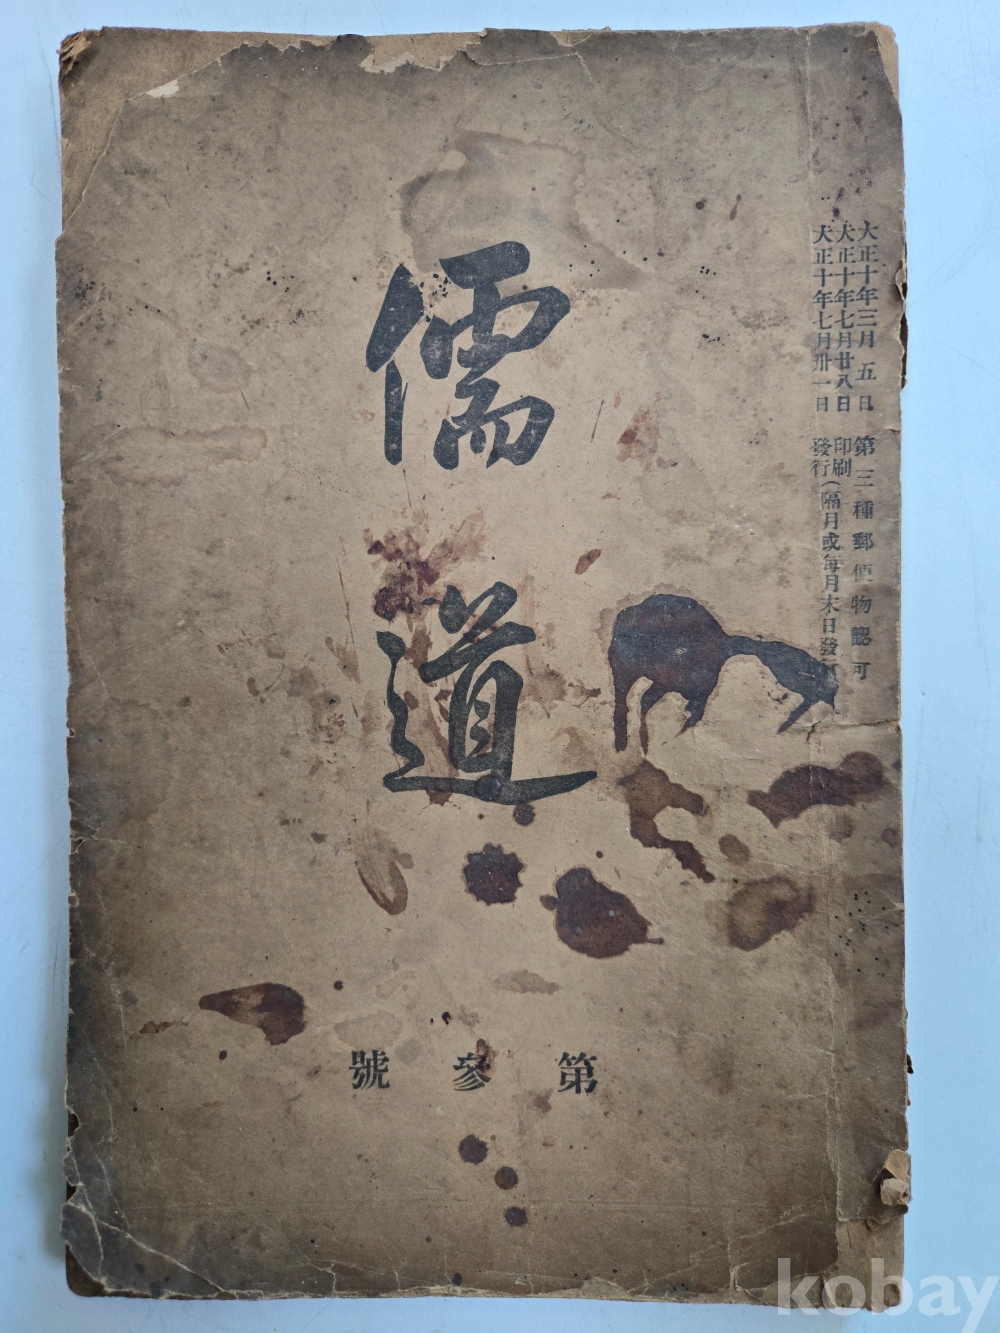 大正十年三月五日 第三種郵便物認可
大正十年七月廿八日 印刷
大正十年七月卅一日 發行(隔月或每月末日發行
儒道
第參號
kobay